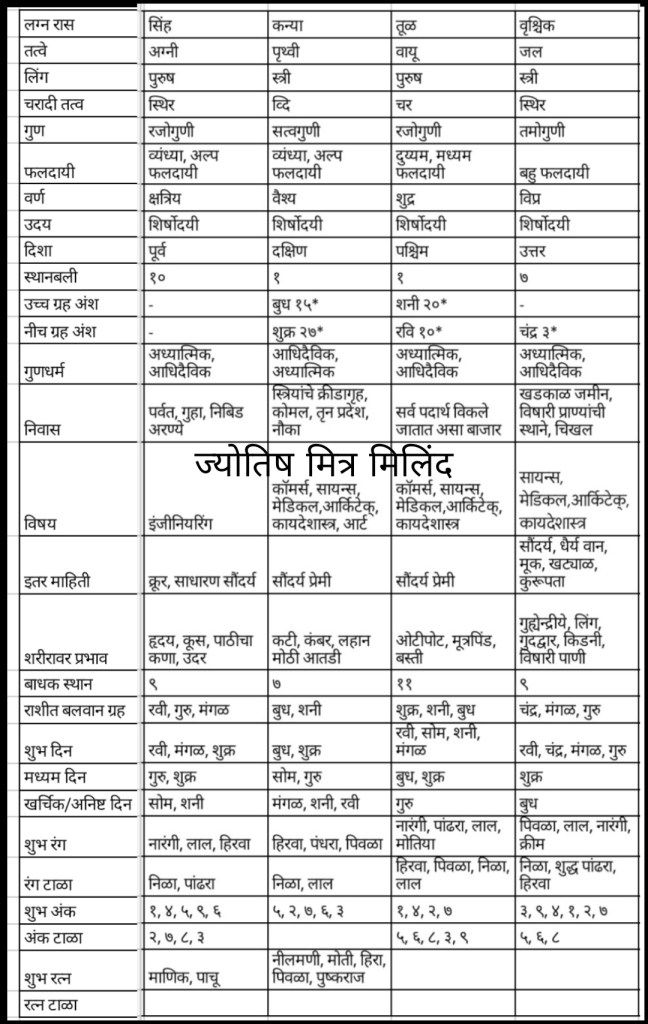 लग्न रास सिंह कन्या तूळ वृश्चिक
तत्वे अग्नी पृथ्वी वायू जल
लिंग पुरुष स्त्री पुरुष स्त्री
चरादी तत्व स्थिर व्दि चर स्थिर
गुण रजोगुणी सत्वगुणी रजोगुणी तमोगुणी
व्यंध्या, अल्प व्यंध्या, अल्प दुय्यम, मध्यम
फलदायी फलदायी फलदायी फलदायी बहु फलदायी
वर्ण क्षत्रिय वैश्य शुद्र विप्र
उदय शिर्षोदयी शिर्षोदयी शिर्षोदयी शिर्षोदयी
दिशा पूर्व दक्षिण पश्चिम उत्तर
स्थानबली १० १ १ ७
उच्च ग्रह अंश - बुध १५* शनी २०* -
नीच ग्रह अंश - शुक्र २७* रवि १०* चंद्र ३*
अध्यात्मिक, आधिदैविक, अध्यात्मिक, अध्यात्मिक,
गुणधर्म आधिदैविक अध्यात्मिक आधिदैविक आधिदैविक
स्त्रियांचे क्रीडागृह, खडकाळ जमीन,
पर्वत, गुहा, निबिड कोमल, तृन प्रदेश, सर्व पदार्थ विकले विषारी प्राण्यांची
निवास अरण्ये नौका जातात असा बाजार स्थाने, चिखल
ज्योतिष मित्र मिलिंद
कॉमर्स, सायन्स, कॉमर्स, सायन्स, सायन्स,
मेडिकल,आर्किटेक्, मेडिकल,आर्किटेक्, मेडिकल,आर्किटेक्,
विषय इंजीनियरिंग कायदेशास्त्र, आर्ट कायदेशास्त्र कायदेशास्त्र
सौंदर्य, धैर्य वान,
मूक, खट्याळ,
इतर माहिती क्रूर, साधारण सौंदर्य सौंदर्य प्रेमी सौंदर्य प्रेमी कुरूपता
गुह्येन्द्रीये, लिंग,
हृदय, कूस, पाठीचा कटी, कंबर, लहान ओटीपोट, मूत्रपिंड, गुदद्वार, किडनी,
शरीरावर प्रभाव कणा, उदर मोठी आतडी बस्ती विषारी पाणी
बाधक स्थान ९ ७ ११ ९
राशीत बलवान ग्रह रवी, गुरु, मंगळ बुध, शनी शुक्र, शनी, बुध चंद्र, मंगळ, गुरु
रवी, सोम, शनी,
शुभ दिन रवी, मंगळ, शुक्र बुध, शुक्र मंगळ रवी, चंद्र, मंगळ, गुरु
मध्यम दिन गुरु, शुक्र सोम, गुरु बुध, शुक्र शुक्र
खर्चिक/अनिष्ट दिन सोम, शनी मंगळ, शनी, रवी गुरु बुध
नारंगी, पांढरा, लाल, पिवळा, लाल, नारंगी,
शुभ रंग नारंगी, लाल, हिरवा हिरवा, पंधरा, पिवळा मोतिया क्रीम
हिरवा, पिवळा, निळा, निळा, शुद्ध पांढरा,
रंग टाळा निळा, पांढरा निळा, लाल लाल हिरवा
शुभ अंक १, ४, ५, ९, ६ ५, २, ७, ६, ३ १, ४, २, ७ ३, ९, ४, १, २, ७
अंक टाळा २, ७, ८, ३ ५, ६, ८, ३, ९ ५, ६, ८
नीलमणी, मोती, हिरा,
शुभ रत्न माणिक, पाचू पिवळा, पुष्कराज
रत्न टाळा